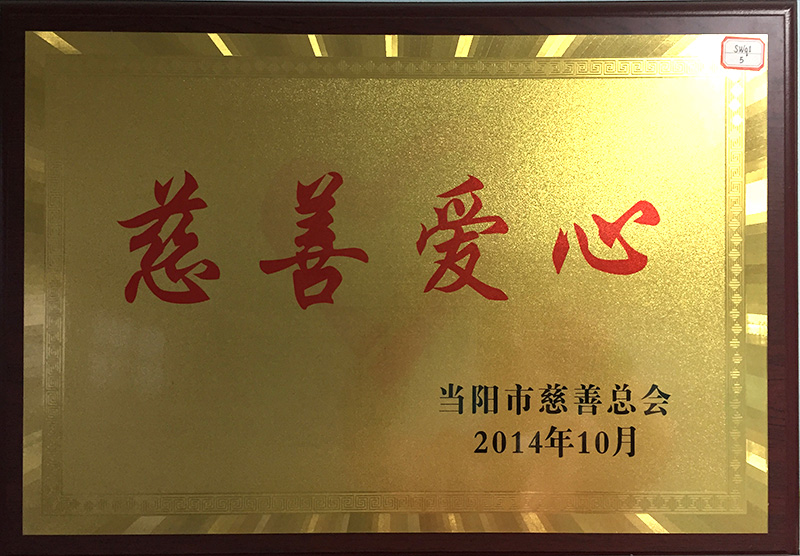 SWq1
5
慈善爱心
当阳市慈善总会
2014年10月